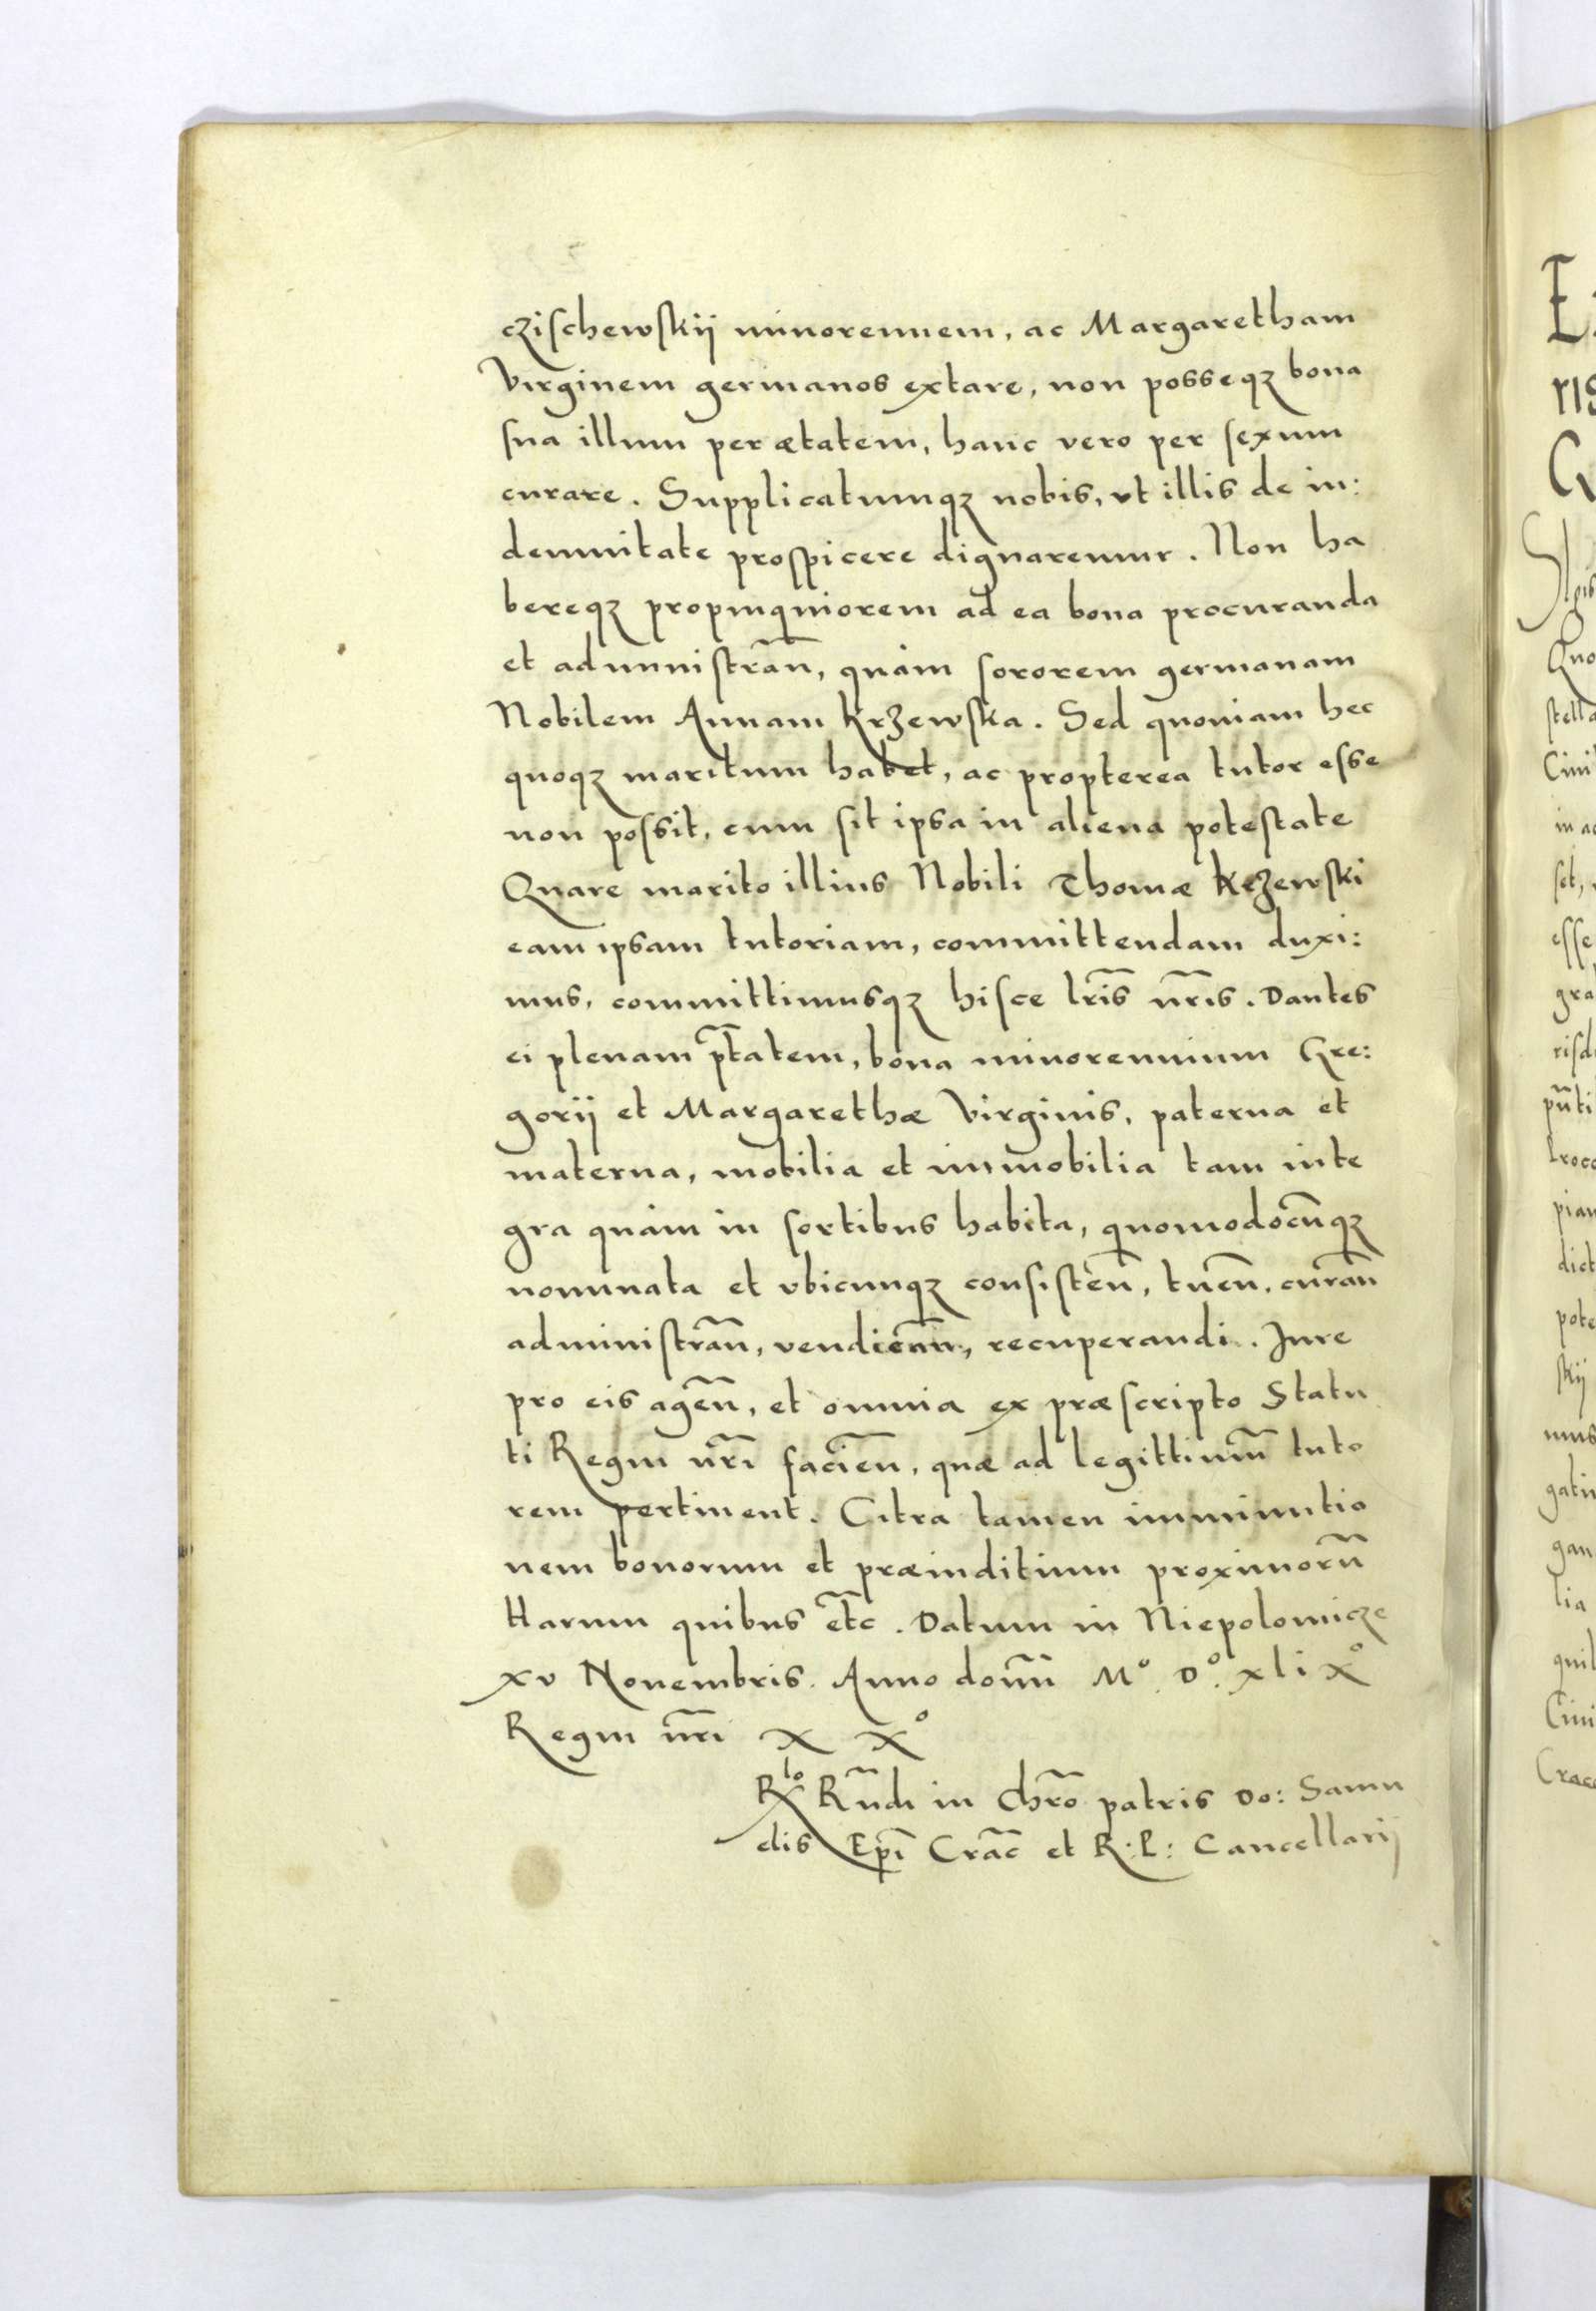 czischewskij minorennem, ac Margaretham
Virginem germanos extare, non posseqȝ bona
sua illum per ætatem, hanc vero per sexum
curare. Supplicatumqȝ nobis, vt illis de in:
demnitate prospicere dignaremur. Non ha
bereqȝ propinquiorem ad ea bona procuranda
et administrañ, quàm sororem germanam
Nobilem Annam Krzewska. Sed quoniam hec
quoqȝ maritum habet, ac propterea tutor esse
non possit, cum sit ipsa in aliena potestate
Quare marito illius Nobili Thomæ Krzewski
eam ipsam tutoriam, committendam duxi:
mus, committimusqȝ hisce lr̃is nr̃is. Dantes
ei plenam pt̃atem, bona minorennium Gre:
gorij et Margarethæ Virginis, paterna et
materna, mobilia et immobilia tam inte
gra quàm in sortibus habita, quomodocũqȝ
nominata et vbicunqȝ consisteñ, tueñ, curañ
administrañ, vendicañ, recuperandi. Jure
pro eis ageñ, et omnia ex præscripto Statu
ti Regni nr̃i facieñ, quæ ad legittimũ tuto
rem pertinent. Citra tamen imminutio
nem bonorum et præiuditium proximorũ
Harum quibus et̃c. Datum in Niepolomicze
xv Nouembris. Anno domñi Mº. Dº. xlixº
Regni nr̃i xxº
Rlo Rñdi in Chrõ patris Do: Samu
elis Ep̃i Crac̃ et R. P: Cancellarij
E
ris
G
Quo
stella
Ciui
in ac
sit,
esse
gra
risd
pñti
croco
pian
dict
pote
skij
mus
gatiu
gan
lia
quil
Ciui
Crac